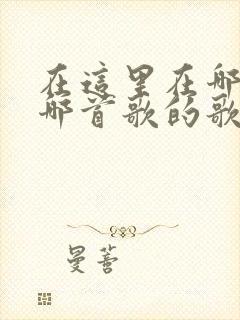 在這里在那
那首歌的歌
曼蓍